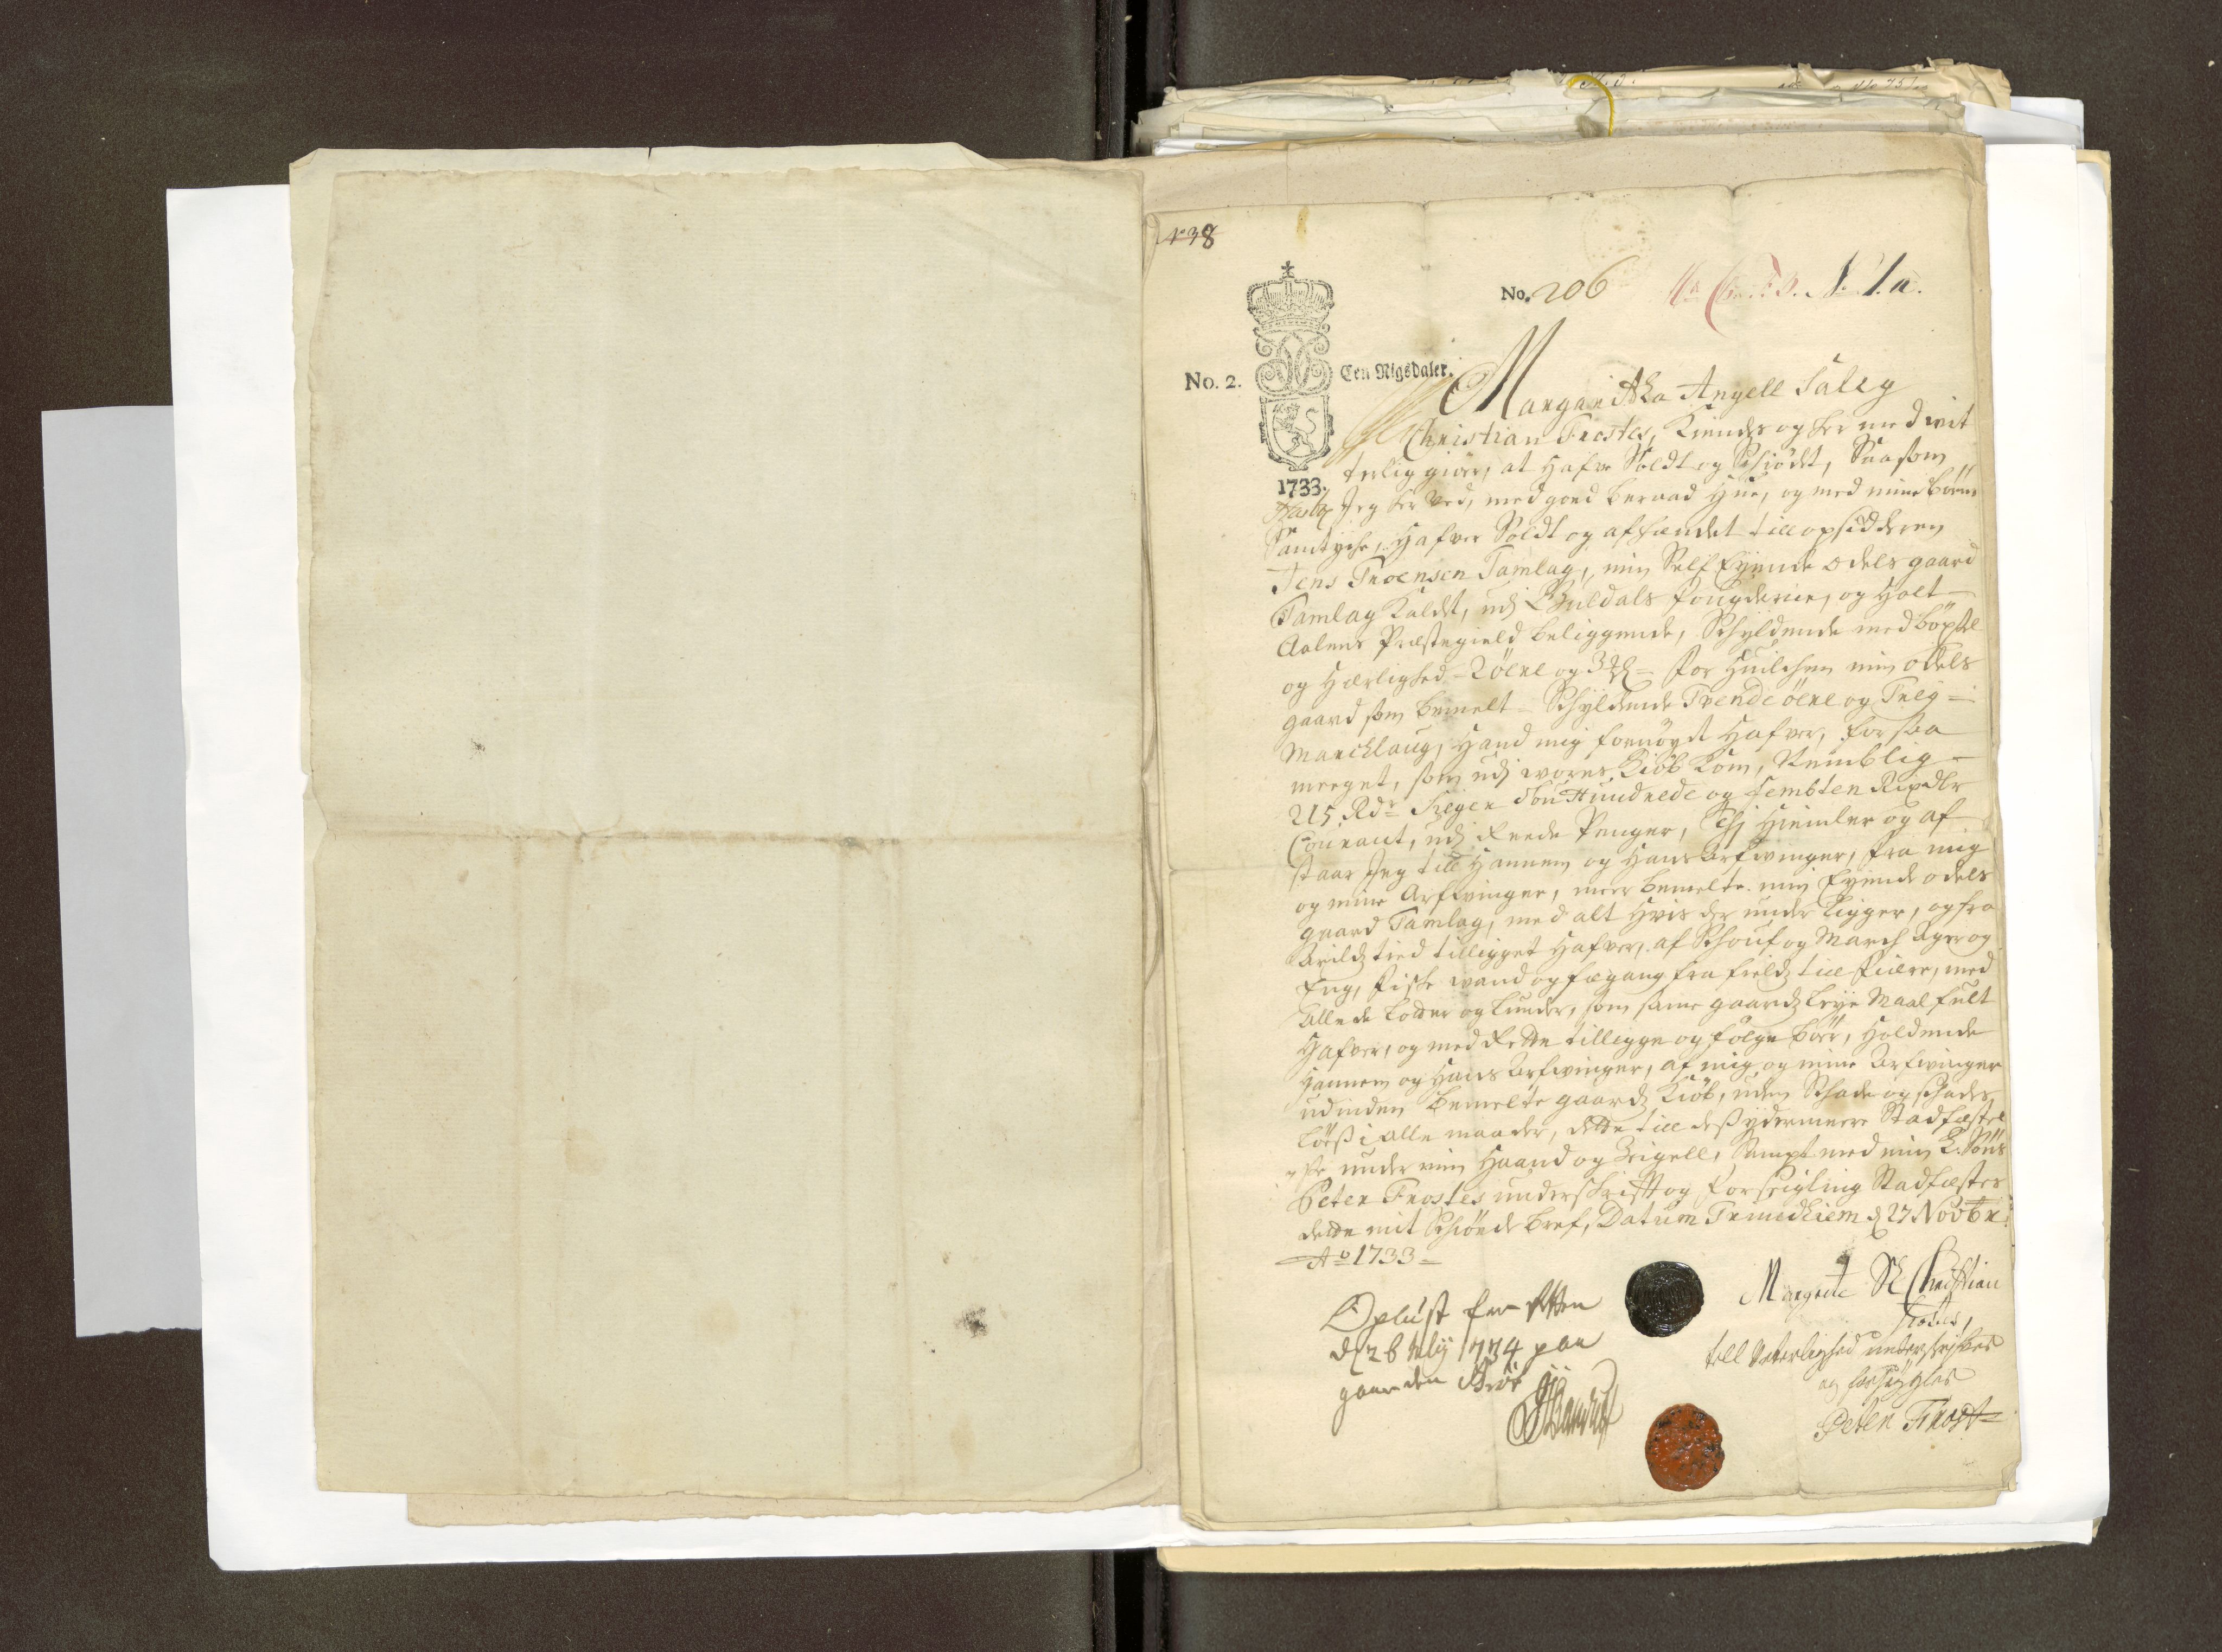 N. 38
No. 206 N. 1. a.
No. 2. Een Rigsdaler.
1733.
Margaretha Angell Salig
Christian Frostes, Kiendes og her med wit
terlig giør, at hafve Soldt og Schiødt, Saasom
Jeg her ved, med goed beraad Hue, og med mine børns
Samtyche, Hafver Soldt og afhændet till opsidderen
Jens Troensen Tamlag, min Self Eyende odels gaard
Tamlag Kaldt, udj Guldals fougderie, og Holt
Aalens Præstegield beliggende, Schyldende med böxsel
og Herlighed 2 öere og 3 for Huilchen min odels
gaard som bemelt Schyldende Tvende öere og Trey
Marcklaug, Hand mig fornöyet Hafver, for saa
meeget, som udj wores Kiøb Kom, Nemblig
215 Rdr Siger Tou Hundrede og fembten Rixdlr
Courant, udj Reede Penger, Thj Hiemler og af
staar Jeg till Hannem og Hans Arfvinger, fra mig
og mine Arfvinger, meer bemelte min Eyende odels
gaard Tamlag, med alt Hvis der under ligger, og fra
Arilds tied tilligget Hafver, af Schouf og March Ager og
Eng, fiske wand og fægang fra field till fiære, med
Alle de Lotter og Lunder, som samme gaard
Hafver, og med Rette tilligge og følge bör, Holdende
Hannem og Hans Arfvinger, af mig og mine Arfvinger
udinden bemelte gaards Kiöb, uden Schade og schades
löes i alle maader, dette till dess ydermeere Stadfæstel
se under min Haand og Zeigell, Sampt med min K. Söns
Peter Frostes underschrifft og forseigling Stadfæster
dette mit Schiöede bref, Datum Trundhiem d 27 Novbr:
Ao 1733
Margrete Sl Christian
Frostes,
till Vitterlighed underschrifves
og forseigles
Peter Frost
Oplæst for Retten
d 26 1734 paa
gaarden